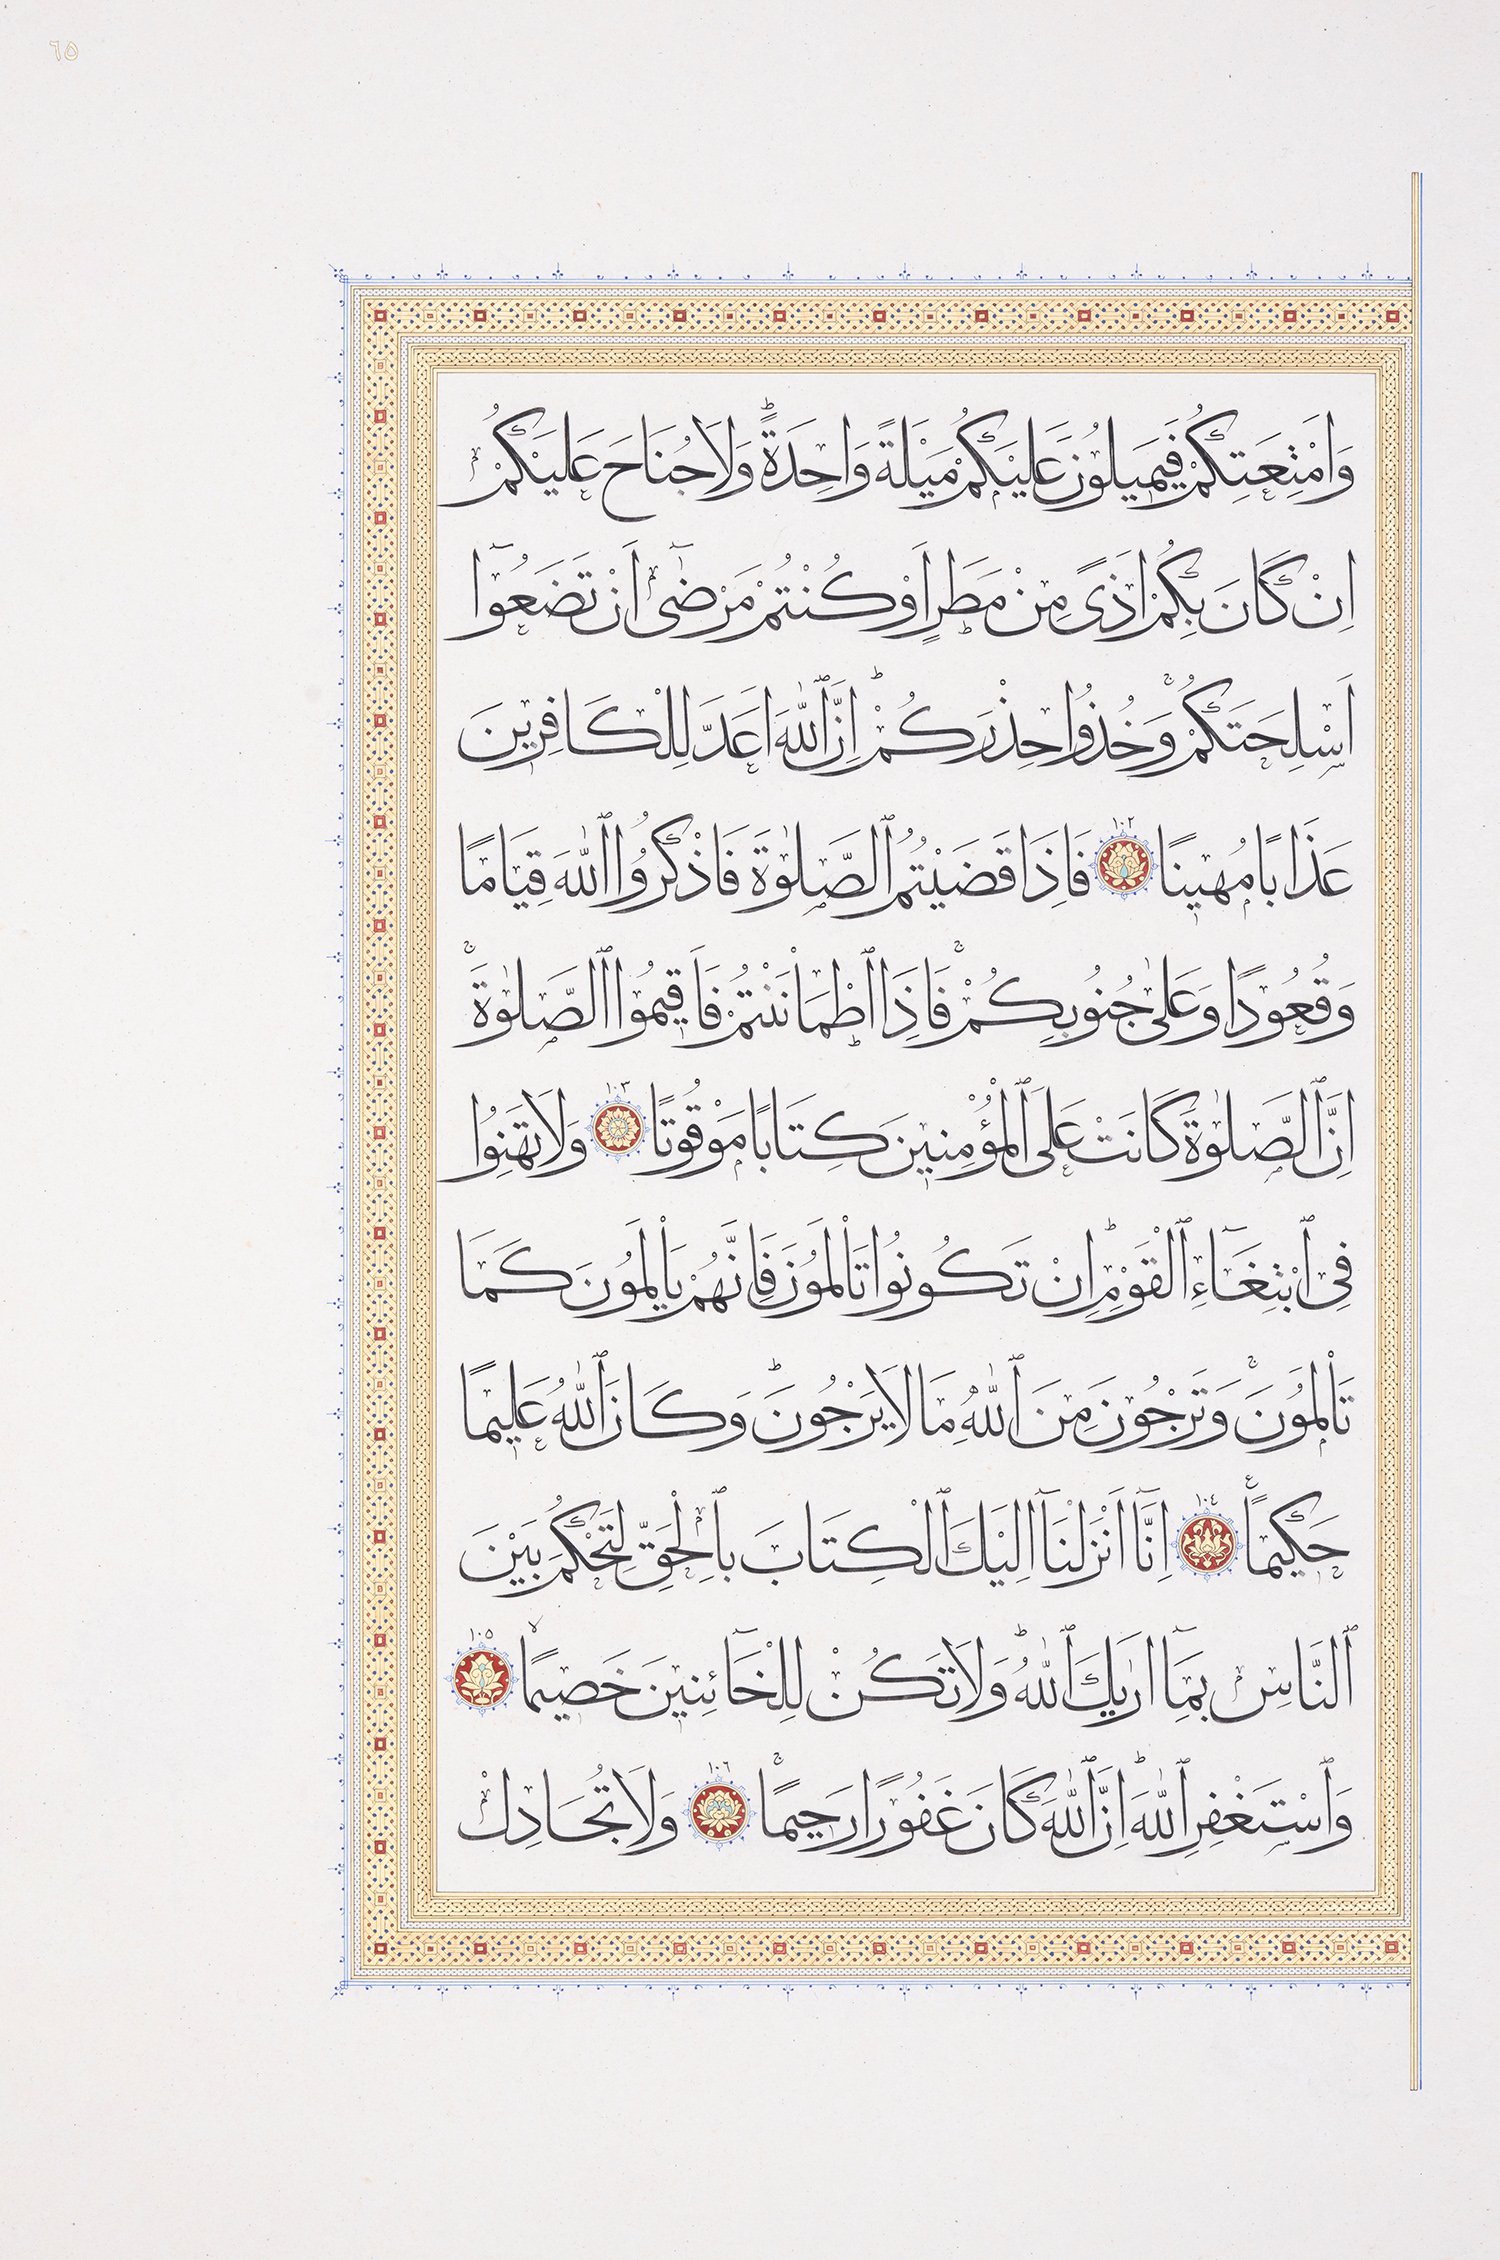 ٦٥
وَاَمْتِعَتِكُمْ فَيَمِيلُونَ عَلَيْكُمْ مَيْلَةً وَاحِدَةًۜ وَلَا جُنَاحَ عَلَيْكُمْ
اِنْ كَانَ بِكُمْ اَذًى مِنْ مَطَرٍ اَوْ كُنْتُمْ مَرْضٰٓى اَنْ تَضَعُٓوا
اَسْلِحَتَكُمْۚ وَخُذُوا حِذْرَكُمْۜ اِنَّ ٱللّٰهَ اَعَدَّ لِلْكَافِرِينَ
عَذَابًا مُهِينًا ١٠٢ فَاِذَا قَضَيْتُمُ ٱلصَّلٰوةَ فَاذْكُرُوا ٱللّٰهَ قِيَامًا
وَقُعُودًا وَعَلٰى جُنُوبِكُمْۚ فَاِذَا ٱطْمَاْنَنْتُمْ فَاَقِيمُوا ٱلصَّلٰوةَۚ
اِنَّ ٱلصَّلٰوةَ كَانَتْ عَلَى ٱلْمُؤْمِنِينَ كِتَابًا مَوْقُوتًا ١٠٣ وَلَا تَهِنُوا
فِى ٱبْتِغَٓاءِ ٱلْقَوْمِۜ اِنْ تَكُونُوا تَاْلَمُونَ فَاِنَّهُمْ يَاْلَمُونَ كَمَا
تَاْلَمُونَۚ وَتَرْجُونَ مِنَ ٱللّٰهِ مَا لَا يَرْجُونَۜ وَكَانَ ٱللّٰهُ عَلِيمًا
حَكِيمًا۟ ١٠٤ اِنَّٓا اَنْزَلْنَٓا اِلَيْكَ ٱلْكِتَابَ بِٱلْحَقِّ لِتَحْكُمَ بَيْنَ
ٱلنَّاسِ بِمَٓا اَرٰيكَ ٱللّٰهُۜ وَلَا تَكُنْ لِلْخَٓائِنِينَ خَصِيمًاۙ ١٠٥
وَٱسْتَغْفِرِ ٱللّٰهَۜ اِنَّ ٱللّٰهَ كَانَ غَفُورًا رَحِيمًاۚ ١٠٦ وَلَا تُجَادِلْ